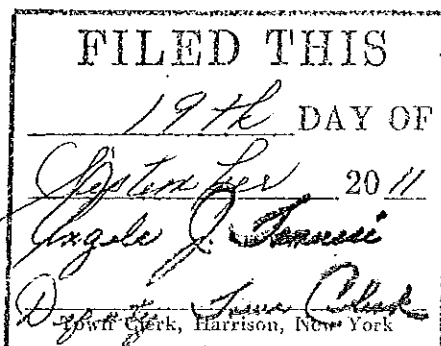 FILED THIS
19th DAY OF
September 2011
Angelo J.
Deputy Town Clerk
Town Clerk, Harrison, New York